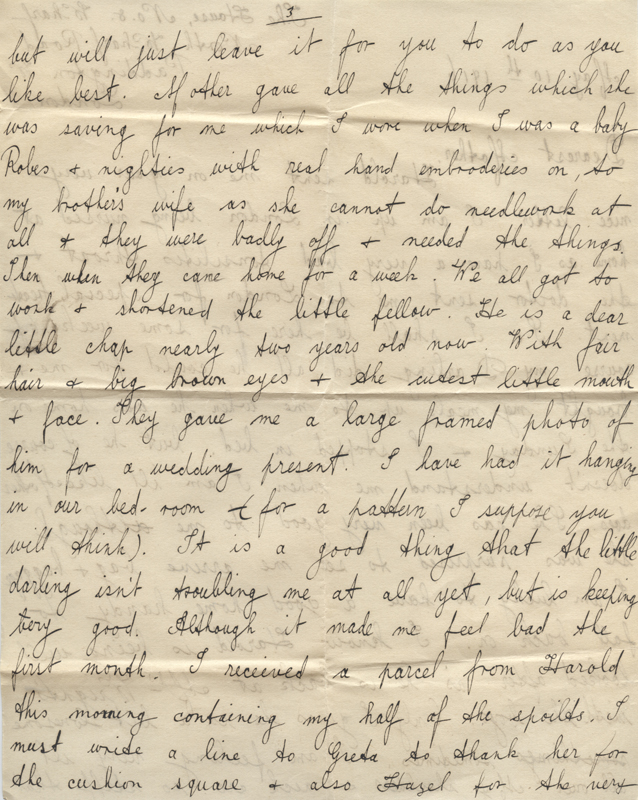 3
but will just leave it for you to do as you
like best. Mother gave all the things which she
was saving for me which I wore when I was a baby
Robes & nighties with real hand embroderies on, to
my brother's wife as she cannot do needlework at
all & they were badly off & needed the things.
Then when they came home for a week. We all got to
work & shortened the little fellow. He is a dear
little chap nearly two years old now. With fair
hair & big brown eyes & the cutest little mouth
& face. They gave me a large framed photo of
him for a wedding present. I have had it hanging
in our bed-room (for a pattern I suppose you
will think). It is a good thing that the little
darling isn't troubling me at all yet, but is keeping
very good. Although it made me feel bad the
first month. I received a parcel from Harold
this morning containing my half of the spoilts. I
must write a line to Greta to thank her for
the cushion square & also Hazel for the very